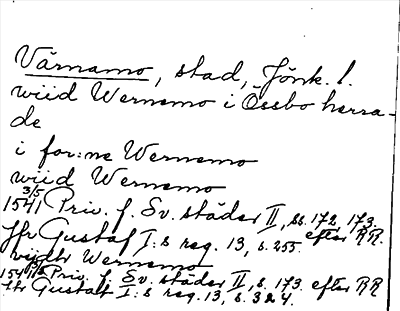 Värnamo, stad, Jönk. l.
wiid Wernemo i Össbo herra-
de
i for:ne Wernemo
wiid Wernemo
1541 3/5 Priv. f. Sv. städer II, ss. 172, 173.
Gustaf I:s reg. 13, s. 255. efter RR.
Wernemo
Priv. f. Sv. städer II, s. 173. efter RR
Gustaf I:s reg. 13, s. 324.